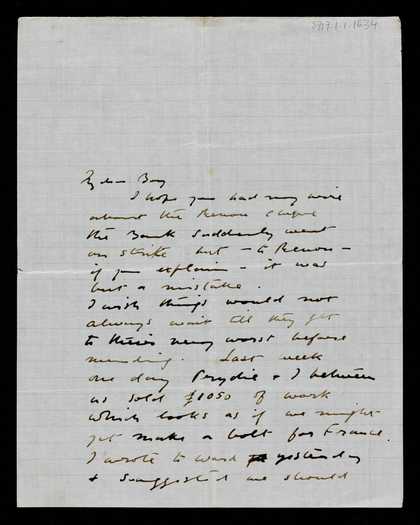 My dear Boy
I hope you had my wire
about the Renou cheque
the Bank suddenly went
on strike but - to Renou -
if you explain - it was
but a mistake.
I wish things would not
always wait till they get
to their very worst before
mending. Last week
one day Prydie & I between
us sold £1050 of work
which looks as if we might
yet make a bolt for France.
I wrote to Ward yesterday
& suggested we should